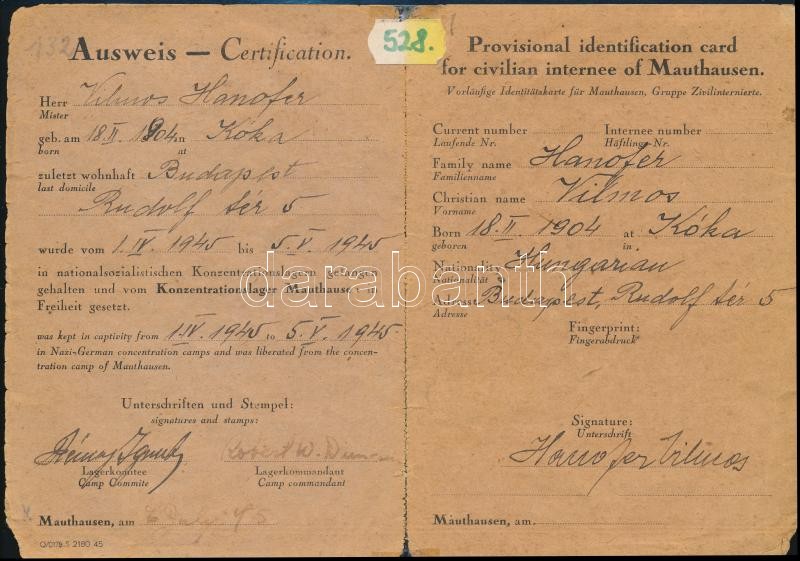 132
528.
Ausweis — Certification.
Herr Vilmos Hanofer
Mister
geb. am 18. II. 1904 in Kóka
born at
zuletzt wohnhaft Budapest
last domicile
Rudolf tér 5
wurde vom 1. IV. 1945 bis 5. V. 1945
in nationalsozialistischen Konzentrationslagern gefangen
gehalten und vom Konzentrationslager Mauthausen in
Freiheit gesetzt.
was kept in captivity from 1. IV. 1945 to 5. V. 1945
in Nazi-German concentration camps and was liberated from the concen-
tration camp of Mauthausen.
Unterschriften und Stempel:
signatures and stamps:
Robert W.
Lagerkomitee Lagerkommandant
Camp Commite Camp commandant
Mauthausen, am 45
Q/0178 S 2180 45
Provisional identification card
for civilian internee of Mauthausen.
Vorläufige Identitätskarte für Mauthausen, Gruppe Zivilinternierte.
Current number Internee number
Laufende Nr. Häftlings-Nr.
Family name Hanofer
Familienname
Christian name Vilmos
Vorname
Born 18. II. 1904 at Kóka
geboren in
Nationality Hungarian
Nationalität
Adresse Budapest, Rudolf tér 5
Adresse
Fingerprint:
Fingerabdruck
Signature:
Unterschrift
Hanofer Vilmos
Mauthausen, am.
darabanth